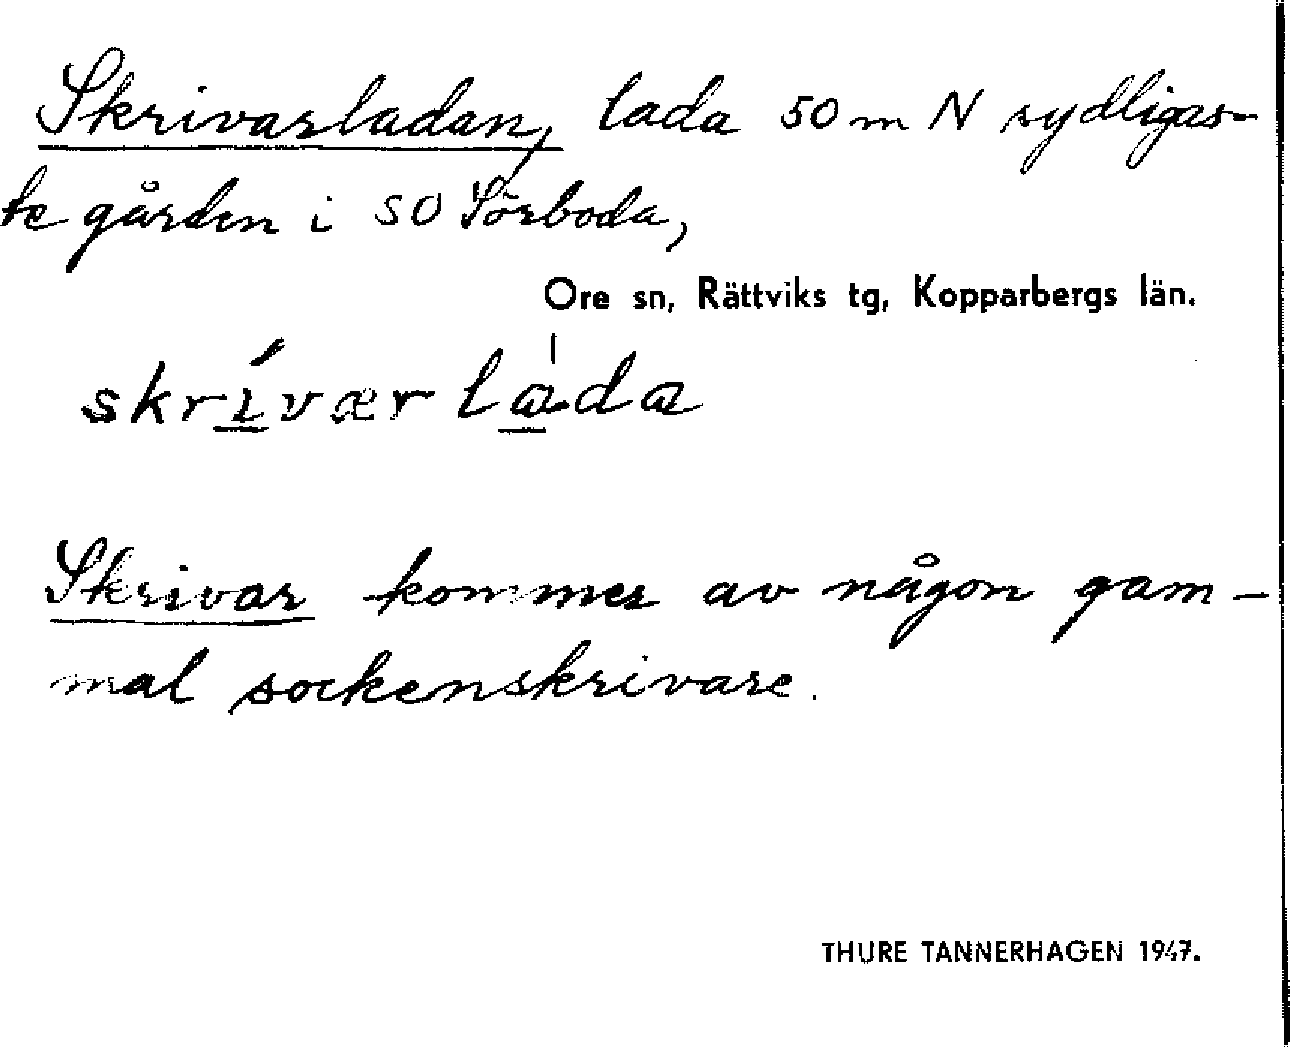 Skrivarladan, lada 50 m N sydligas-
te gården i SO Sörboda,
Ore sn, Rättviks tg, Kopparbergs län.
skrívær lada
Skrivar kommer av någon gam-
mal sockenskrivare.
THURE TANNERHAGEN 1947.